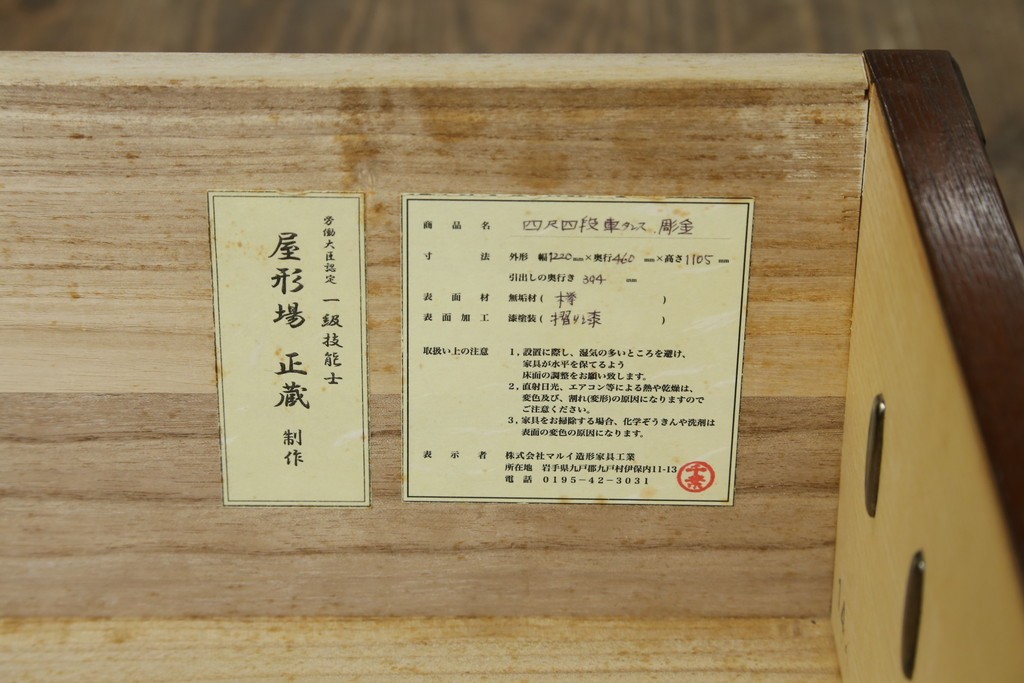 労働大臣認定 一級技能士
屋形場 正蔵 制作
商品名 四尺四段車タンス 彫金
寸法 外形 幅1220mm×奥行460mm×高さ1105mm
引出しの奥行き 394 mm
表面材 無垢材( 欅 )
表面加工 漆塗装( 摺り漆 )
取扱い上の注意 1,設置に際し、湿気の多いところを避け、
家具が水平を保てるよう
床面の調整をお願い致します。
2,直射日光、エアコン等による熱や乾燥は、
変色及び、割れ(変形)の原因になりますので
ご注意ください。
3,家具をお掃除する場合、化学ぞうきんや洗剤は
表面の変色の原因になります。
表示者 株式会社マルイ造形家具工業
所在地 岩手県九戸郡九戸村伊保内11-13
電話 0195-42-3031